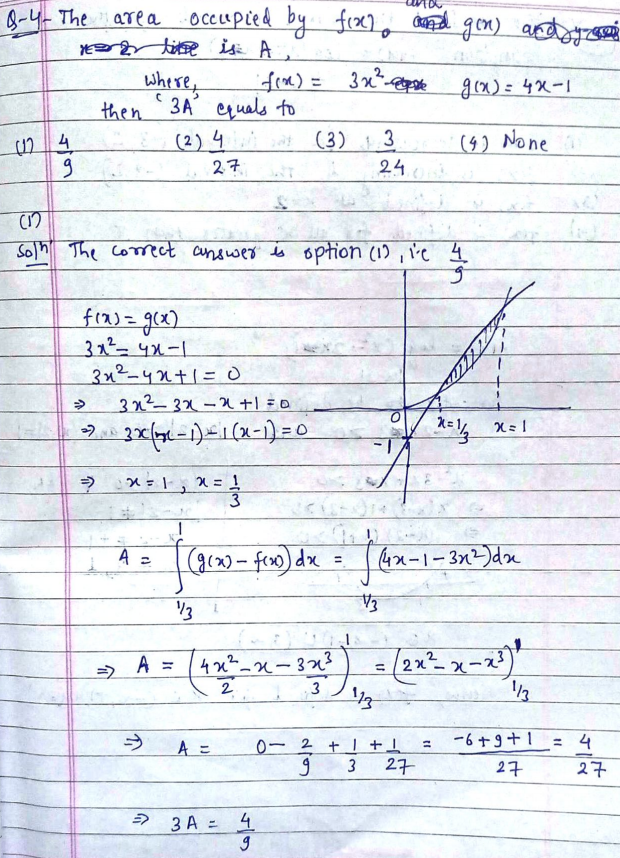 Q-4- The area occupied by f(x), and g(x)
is A,
where, f(x) = 3x² g(x) = 4x-1
then '3A' equals to
(1) 4/9 (2) 4/27 (3) 3/24 (4) None
(1)
Solⁿ The correct answer is option (1), i.e 4/9
f(x) = g(x)
3x² = 4x-1
3x²-4x+1 = 0
⇒ 3x²-3x-x+1 = 0
⇒ 3x(x-1)-1(x-1) = 0
0
-1
x=1/3
x=1
⇒ x = 1, x = 1/3
A = ∫_{1/3}^{1} (g(x) - f(x)) dx = ∫_{1/3}^{1} (4x-1-3x²) dx
⇒ A = (4x²/2 - x - 3x³/3)_{1/3}^{1} = (2x² - x - x³)_{1/3}^{1}
⇒ A = 0 - 2/9 + 1/3 + 1/27 = (-6+9+1)/27 = 4/27
⇒ 3A = 4/9